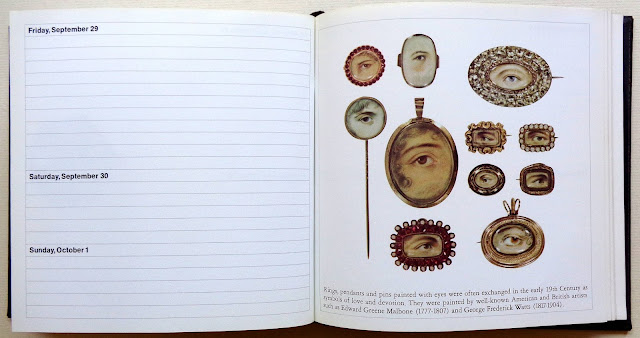 Friday, September 29
Saturday, September 30
Sunday, October 1
Rings, pendants and pins painted with eyes were often exchanged in the early 19th Century as
symbols of love and devotion. They were painted by well-known American and British artists
such as Edward Greene Malbone (1777-1807) and George Frederick Watts (1817-1904).